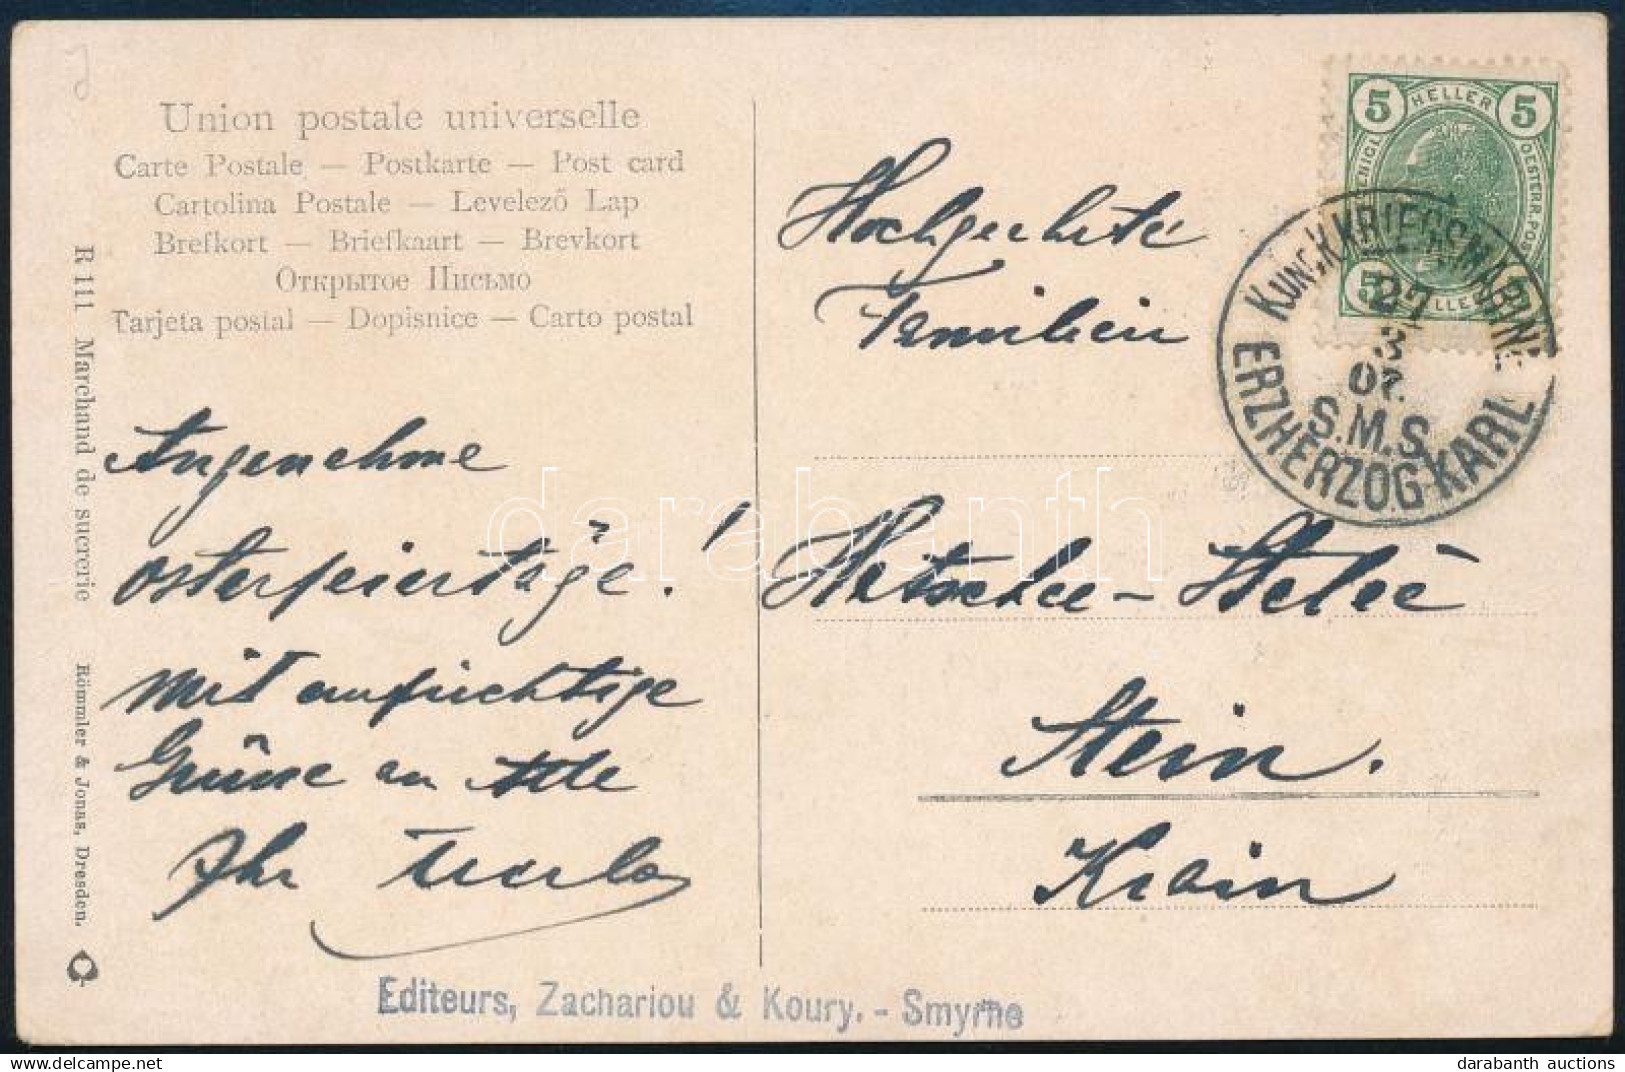 Union postale universelle
Carte Postale — Postkarte — Post card
Cartolina Postale — Levelező Lap
Brefkort — Briefkaart — Brevkort
Открытое Письмо
Tarjeta postal — Dopisnice — Carto postal
R 111 Marchand de sucrerie
Römmler & Jonas, Dresden.
Angenehme
Osterfeiertäge!
Mit aufrichtige
Grüsse an Alle
Ihr
5 HELLER 5
OESTERR. POST
5
K. UND K. KRIEGSMARINE
27
3
07.
S.M.S.
ERZHERZOG KARL
Hochgeehrte
Familien
Stein.
Krain
Editeurs, Zachariou & Koury. - Smyrne
darabanth
darabanth auctions